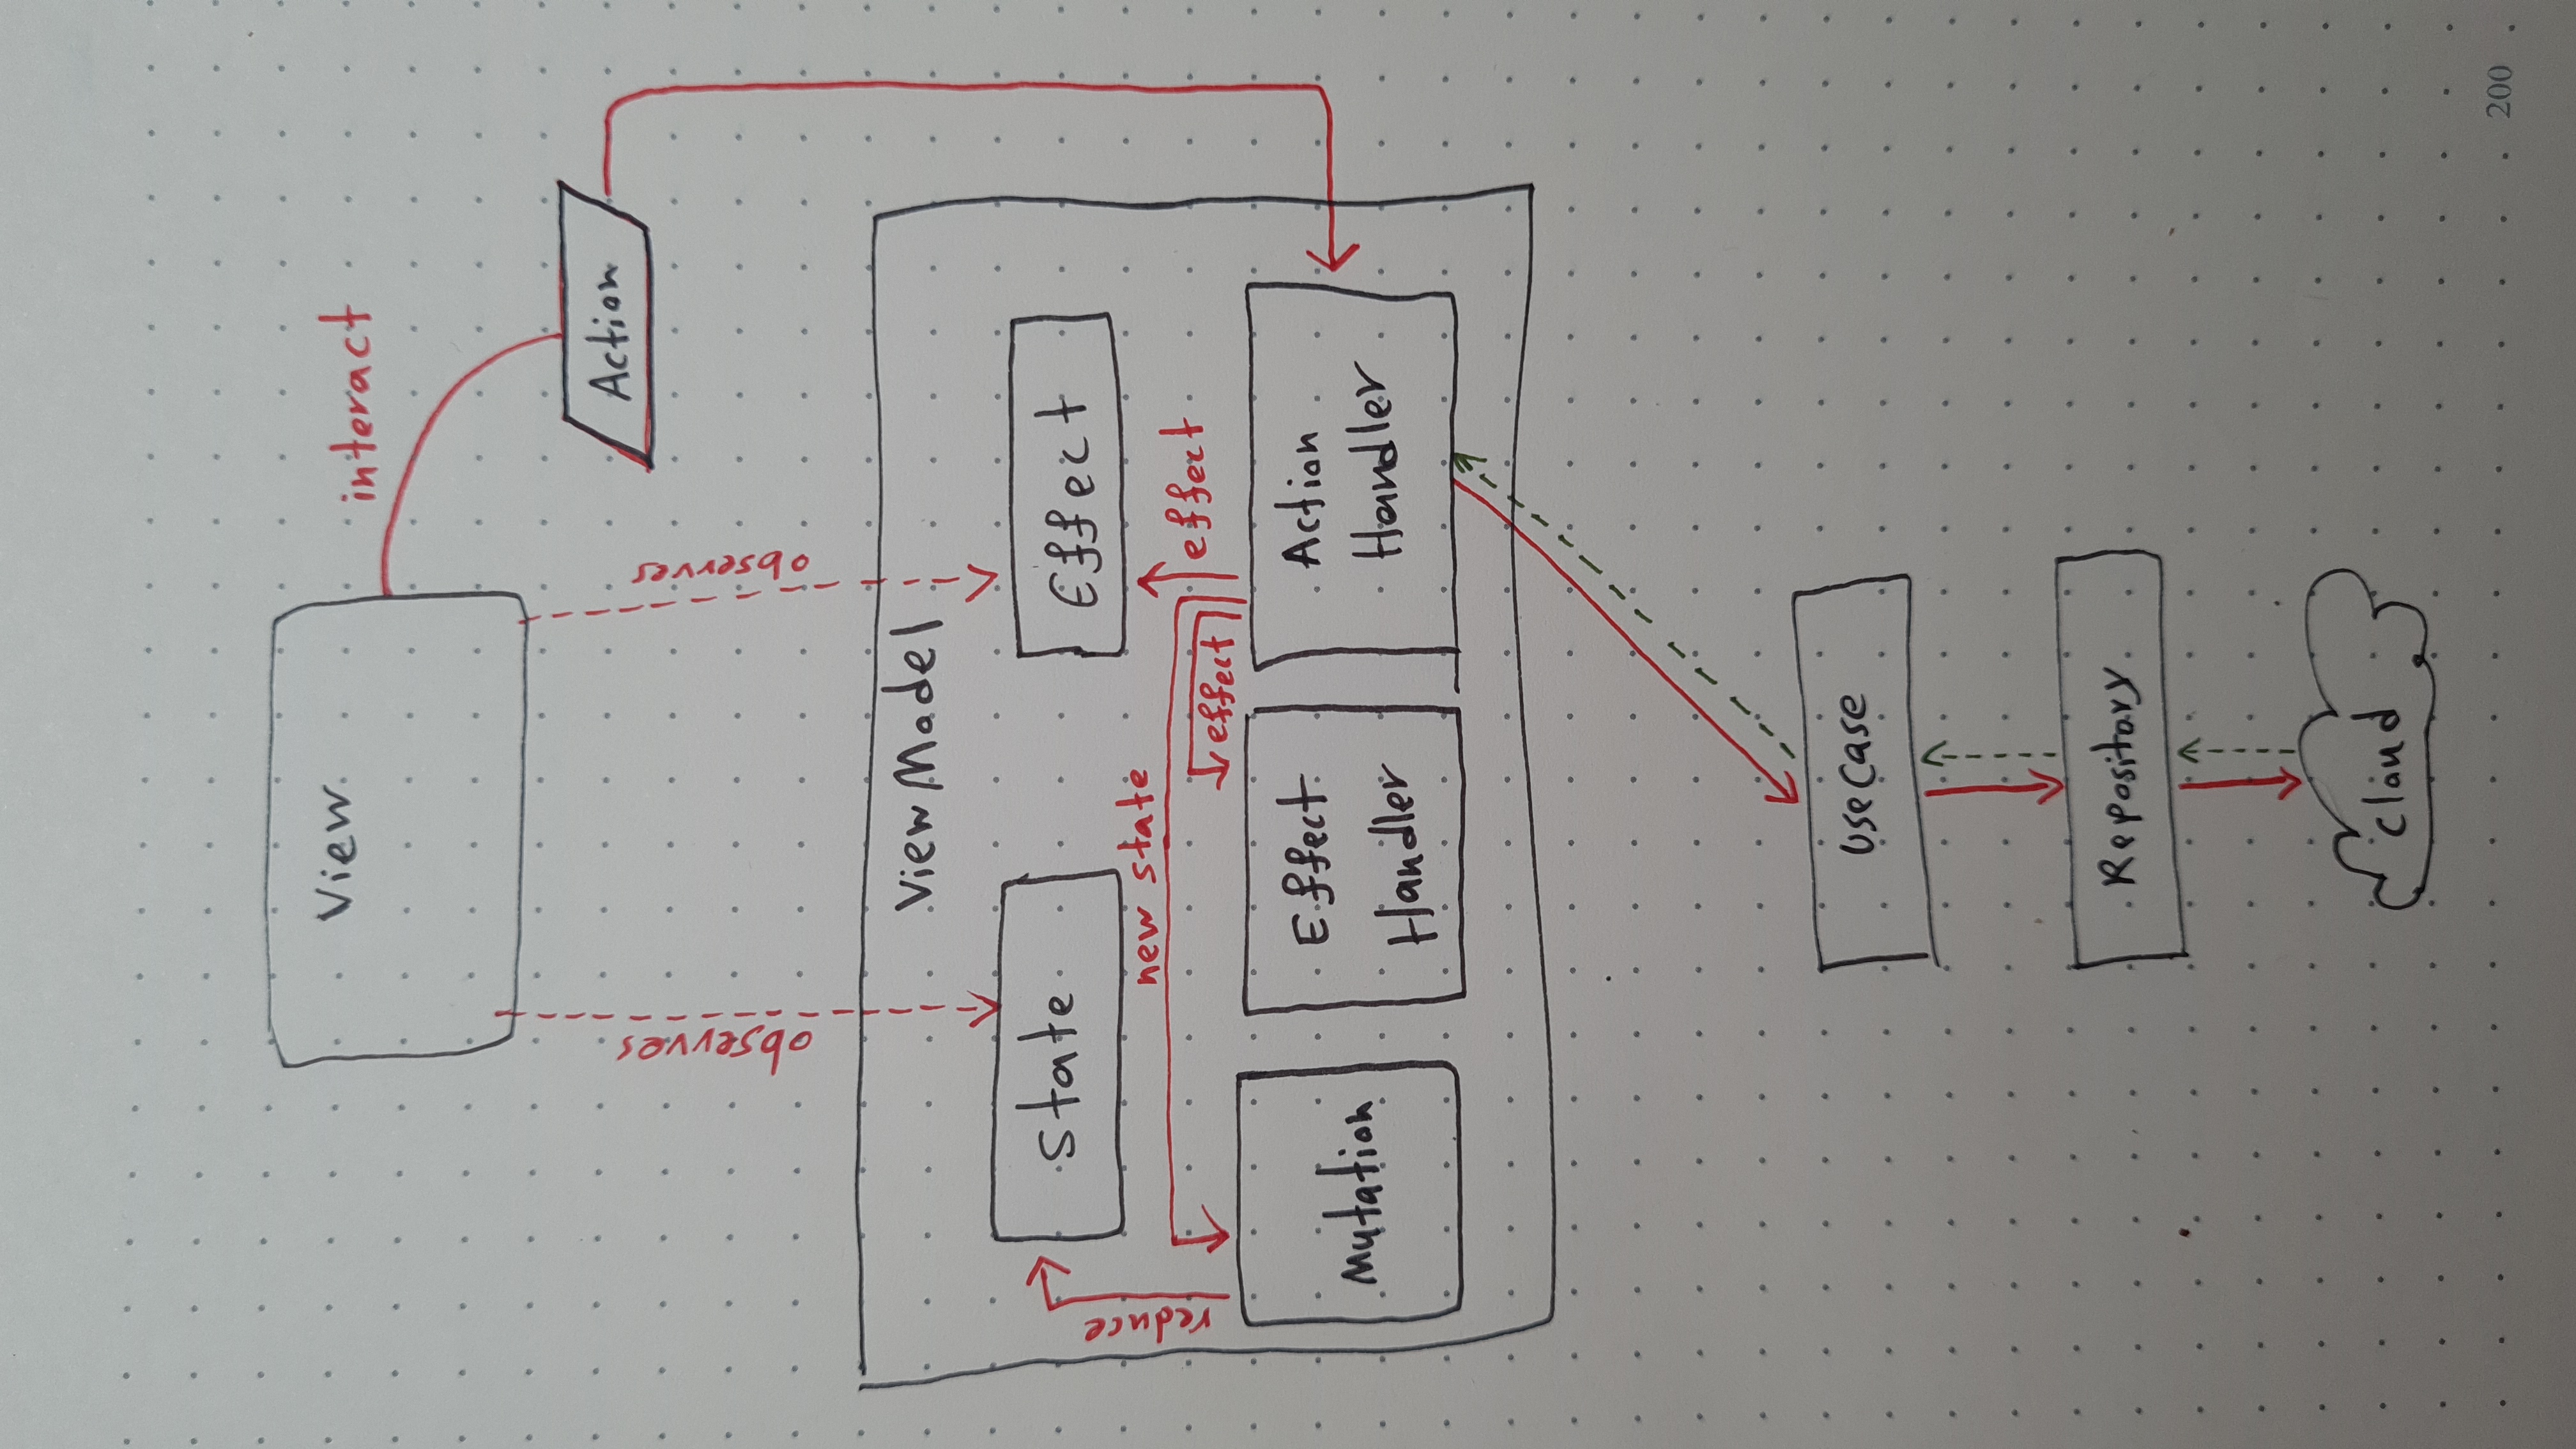 View
interact
Action
observes
observes
ViewModel
State
Effect
reduce
new state
effect
effect
Mutation
Effect
Handler
Action
Handler
UseCase
Repository
Cloud
200